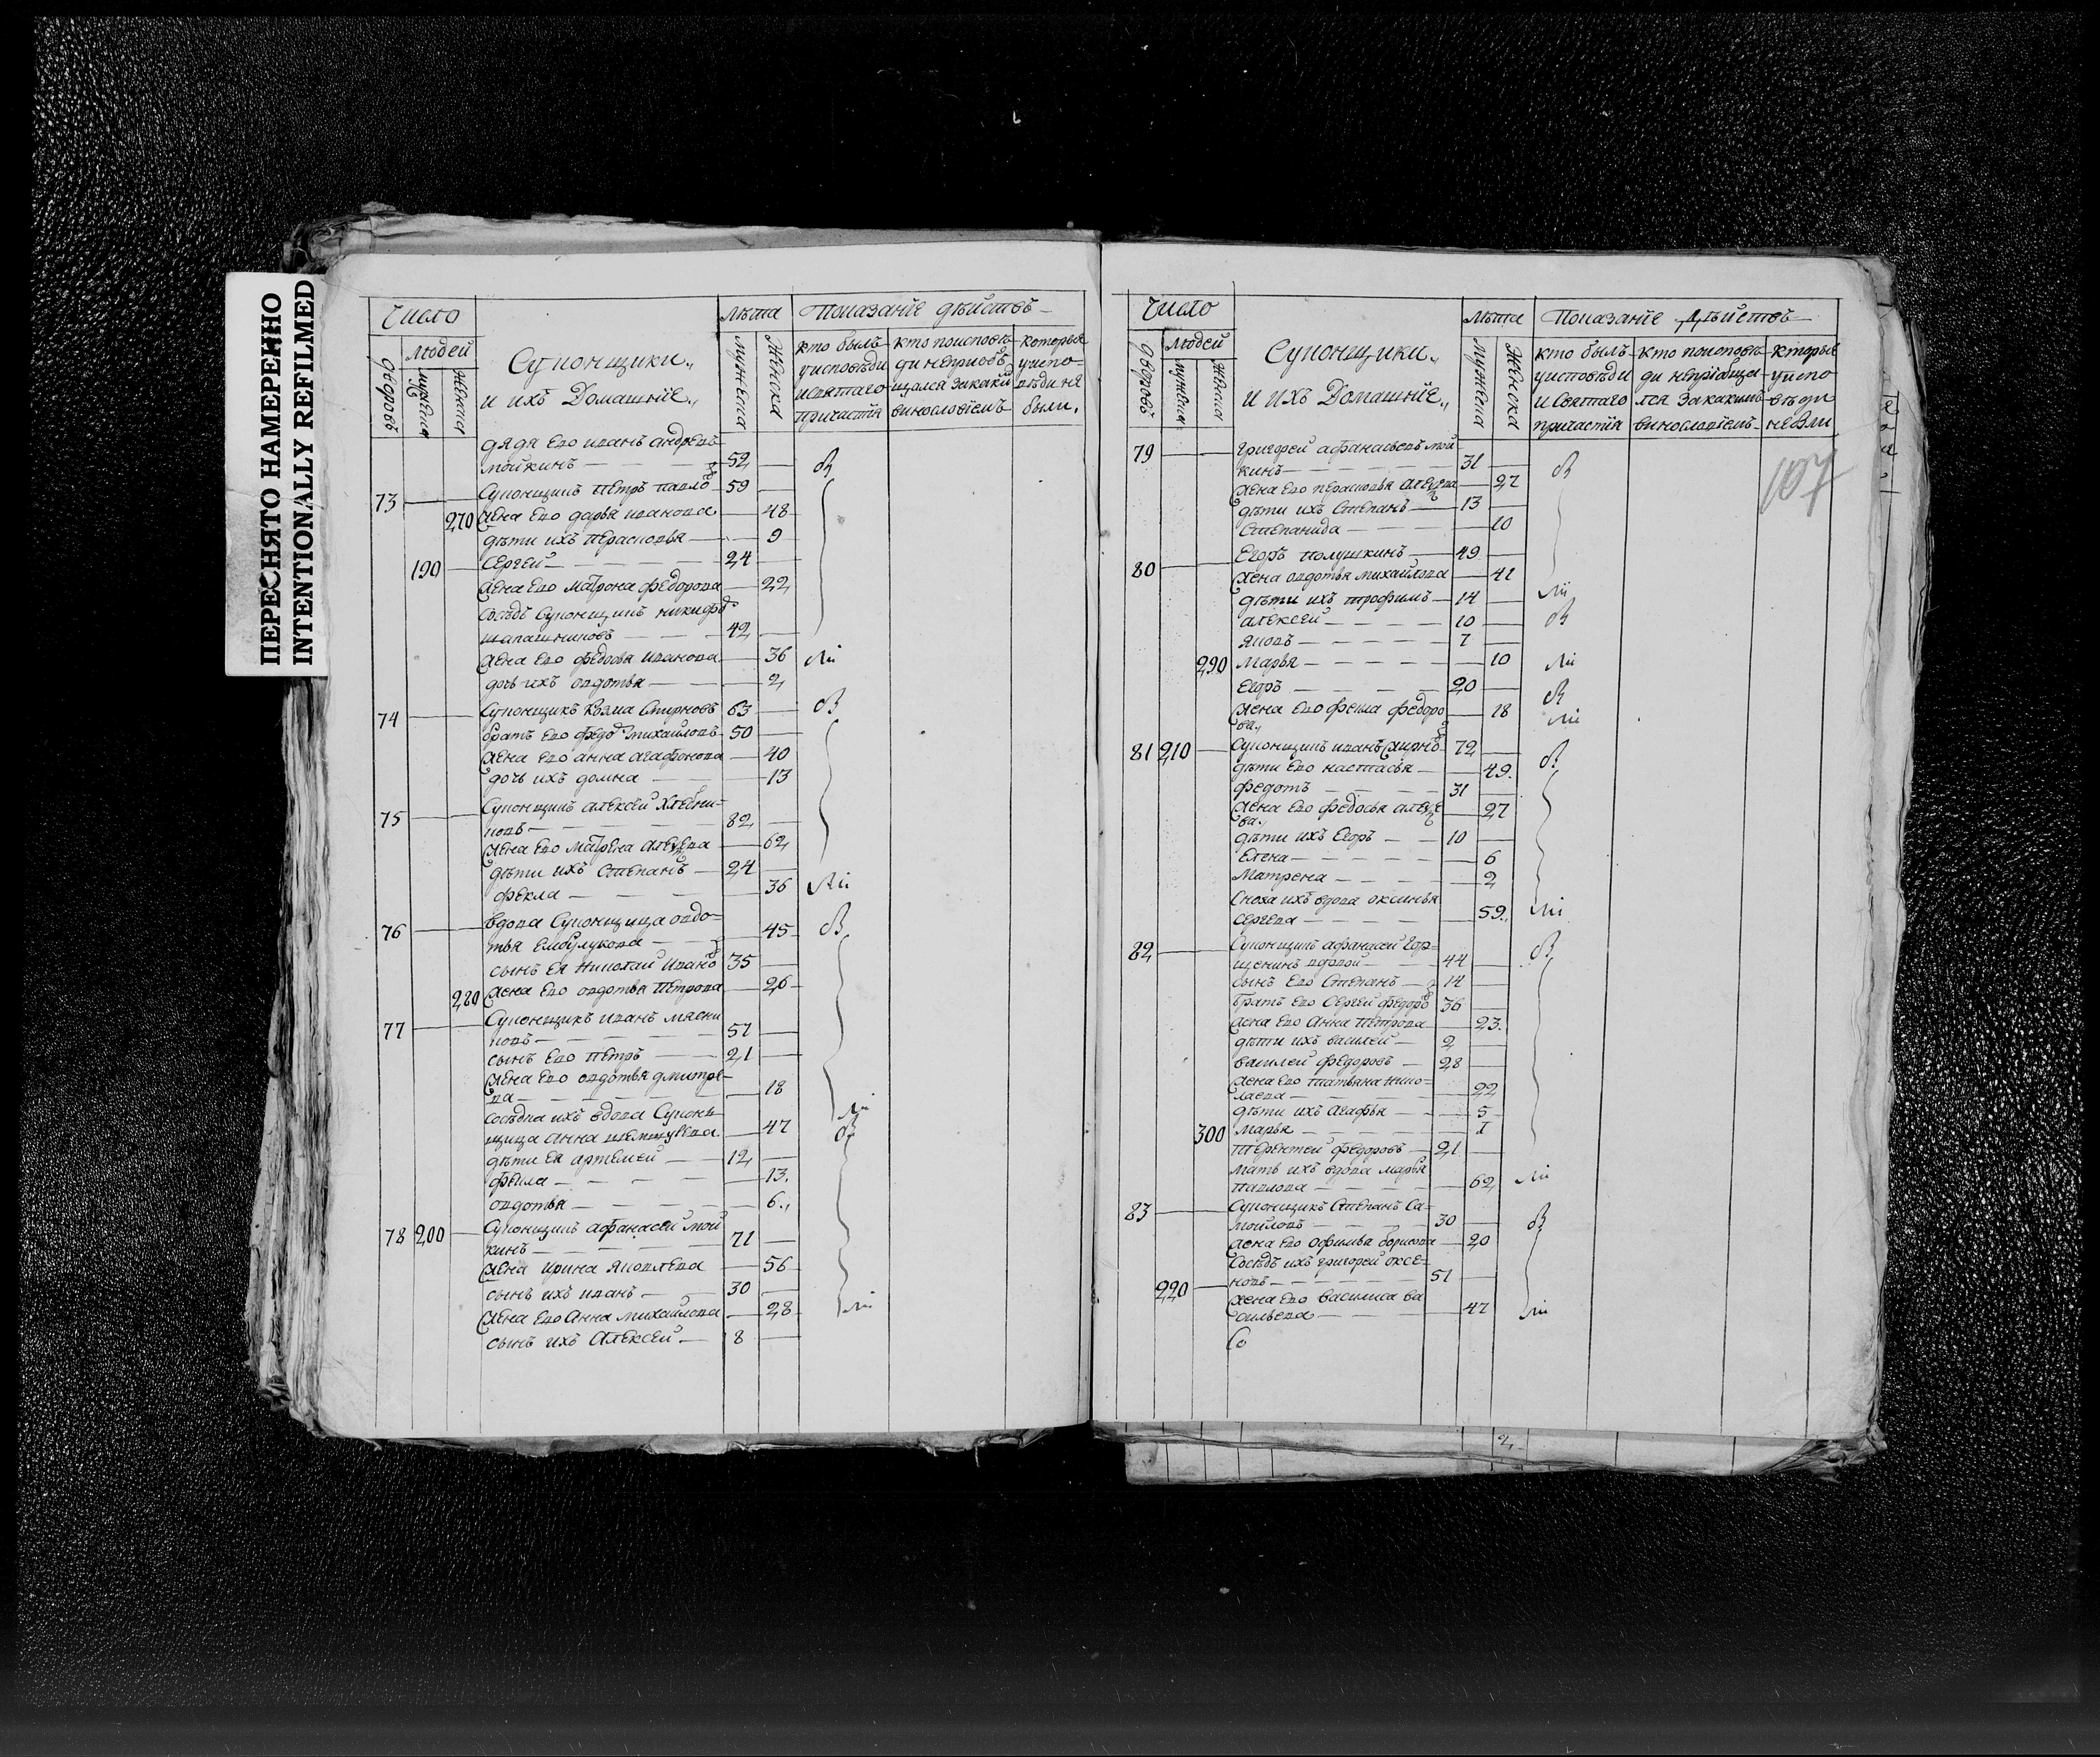 ПЕРЕСНЯТО НАМЕРЕННО
INTENTIONALLY REFILMED
Число
Людей
дворовъ
мужеска
женска
Суконщики
и ихъ Домашніе
Лѣта
мужеска
Женска
Показаніе дѣйствъ
кто былъ
у исповѣди
и святаго
причастія
кто исповѣ
ди не приобѣ
щался за какимъ
винословіемъ
которые
у испо-
вѣди не
были.
дядя Его иванъ андреевъ
мойкинъ 52
73 Суконщикъ Петръ павло 59
270 жена Его дарья иванова 48
дѣти ихъ Перасковья 9
190 Сергей 24
жена Его матрона федорова 22
Сосѣдъ Суконщикъ никифо
шапашниковъ 42
жена Его федосья иванова 36
дочь ихъ овдотья 2
74 Суконщикъ козма Смирновъ 63
братъ Его федо михайловъ 50
жена Его анна агафонова 40
дочь ихъ домна 13
75 Суконщикъ алексей Хлебни-
ковъ 82
жена Его матрена 62
дѣти ихъ Степанъ 24
фекла 36
76 вдова Суконщица овдо-
тья 45
сынъ Ея Николай Ивано 35
280 жена Его овдотья Петрова 26
77 Суконщикъ иванъ мясни
ковъ 51
сынъ Его Петръ 21
жена Его овдотья дмитре-
ва 18
Сосѣдка ихъ вдова Сукон-
щица анна 47
дѣти Ея артемей 12
фекла 13.
овдотья 6.,
78 200 Суконщикъ афанасей мой
кинъ 71
жена ирина яковлева 56
сынъ ихъ иванъ 30
жена Его Анна михайлова 28
сынъ ихъ Алексей 8
Число
Людей
дворовъ
мужеска
женска
Суконщики
и ихъ Домашніе
Лѣта
мужеска
Женска
Показаніе Дѣйствъ
кто былъ
у исповѣди
и святаго
причастія
кто исповѣ
ди не пріобща
лся за какимъ
винословіемъ
которые
у испо
вѣди
не были
107
79 Григорей афанасьевъ мой
кинъ 31
жена Его перасковья 27
дѣти ихъ Степанъ 13
Степанида 10
80 Егоръ полушкинъ 49
жена овдотья михайлова 41
дѣти ихъ трофимъ 14
алексей 10
яковъ 7
290 марья 10
Егоръ 20
жена Его фекла федоро
ва., 18
81 210 Суконщикъ иванъ 72
дѣти Его настасья 49.
федотъ 31
жена Его федосья
ва., 27
дѣти ихъ Егоръ 10
Елена 6
Матрена 2
Сноха ихъ вдова оксинья
сергева 59.
82 Суконщикъ афанасей Гор-
щенинъ вдовой 44
сынъ Его Степанъ 14
братъ Его Сергей федоро 36
жена Его Анна Петрова 23.
дѣти ихъ василей 2
василей федоровъ 28
жена Его татьяна нико-
лаева 22
дѣти ихъ Агафья 5
300 Марья 1
терентей федоровъ 21
мать ихъ вдова марья
павлова 62
83 Суконщикъ Степанъ Са-
мойловъ 30
жена Его офимья борисова 20
Сосѣдъ ихъ григорей оксе-
новъ 51
220 жена Его василиса ва
сильева 47
Со
2